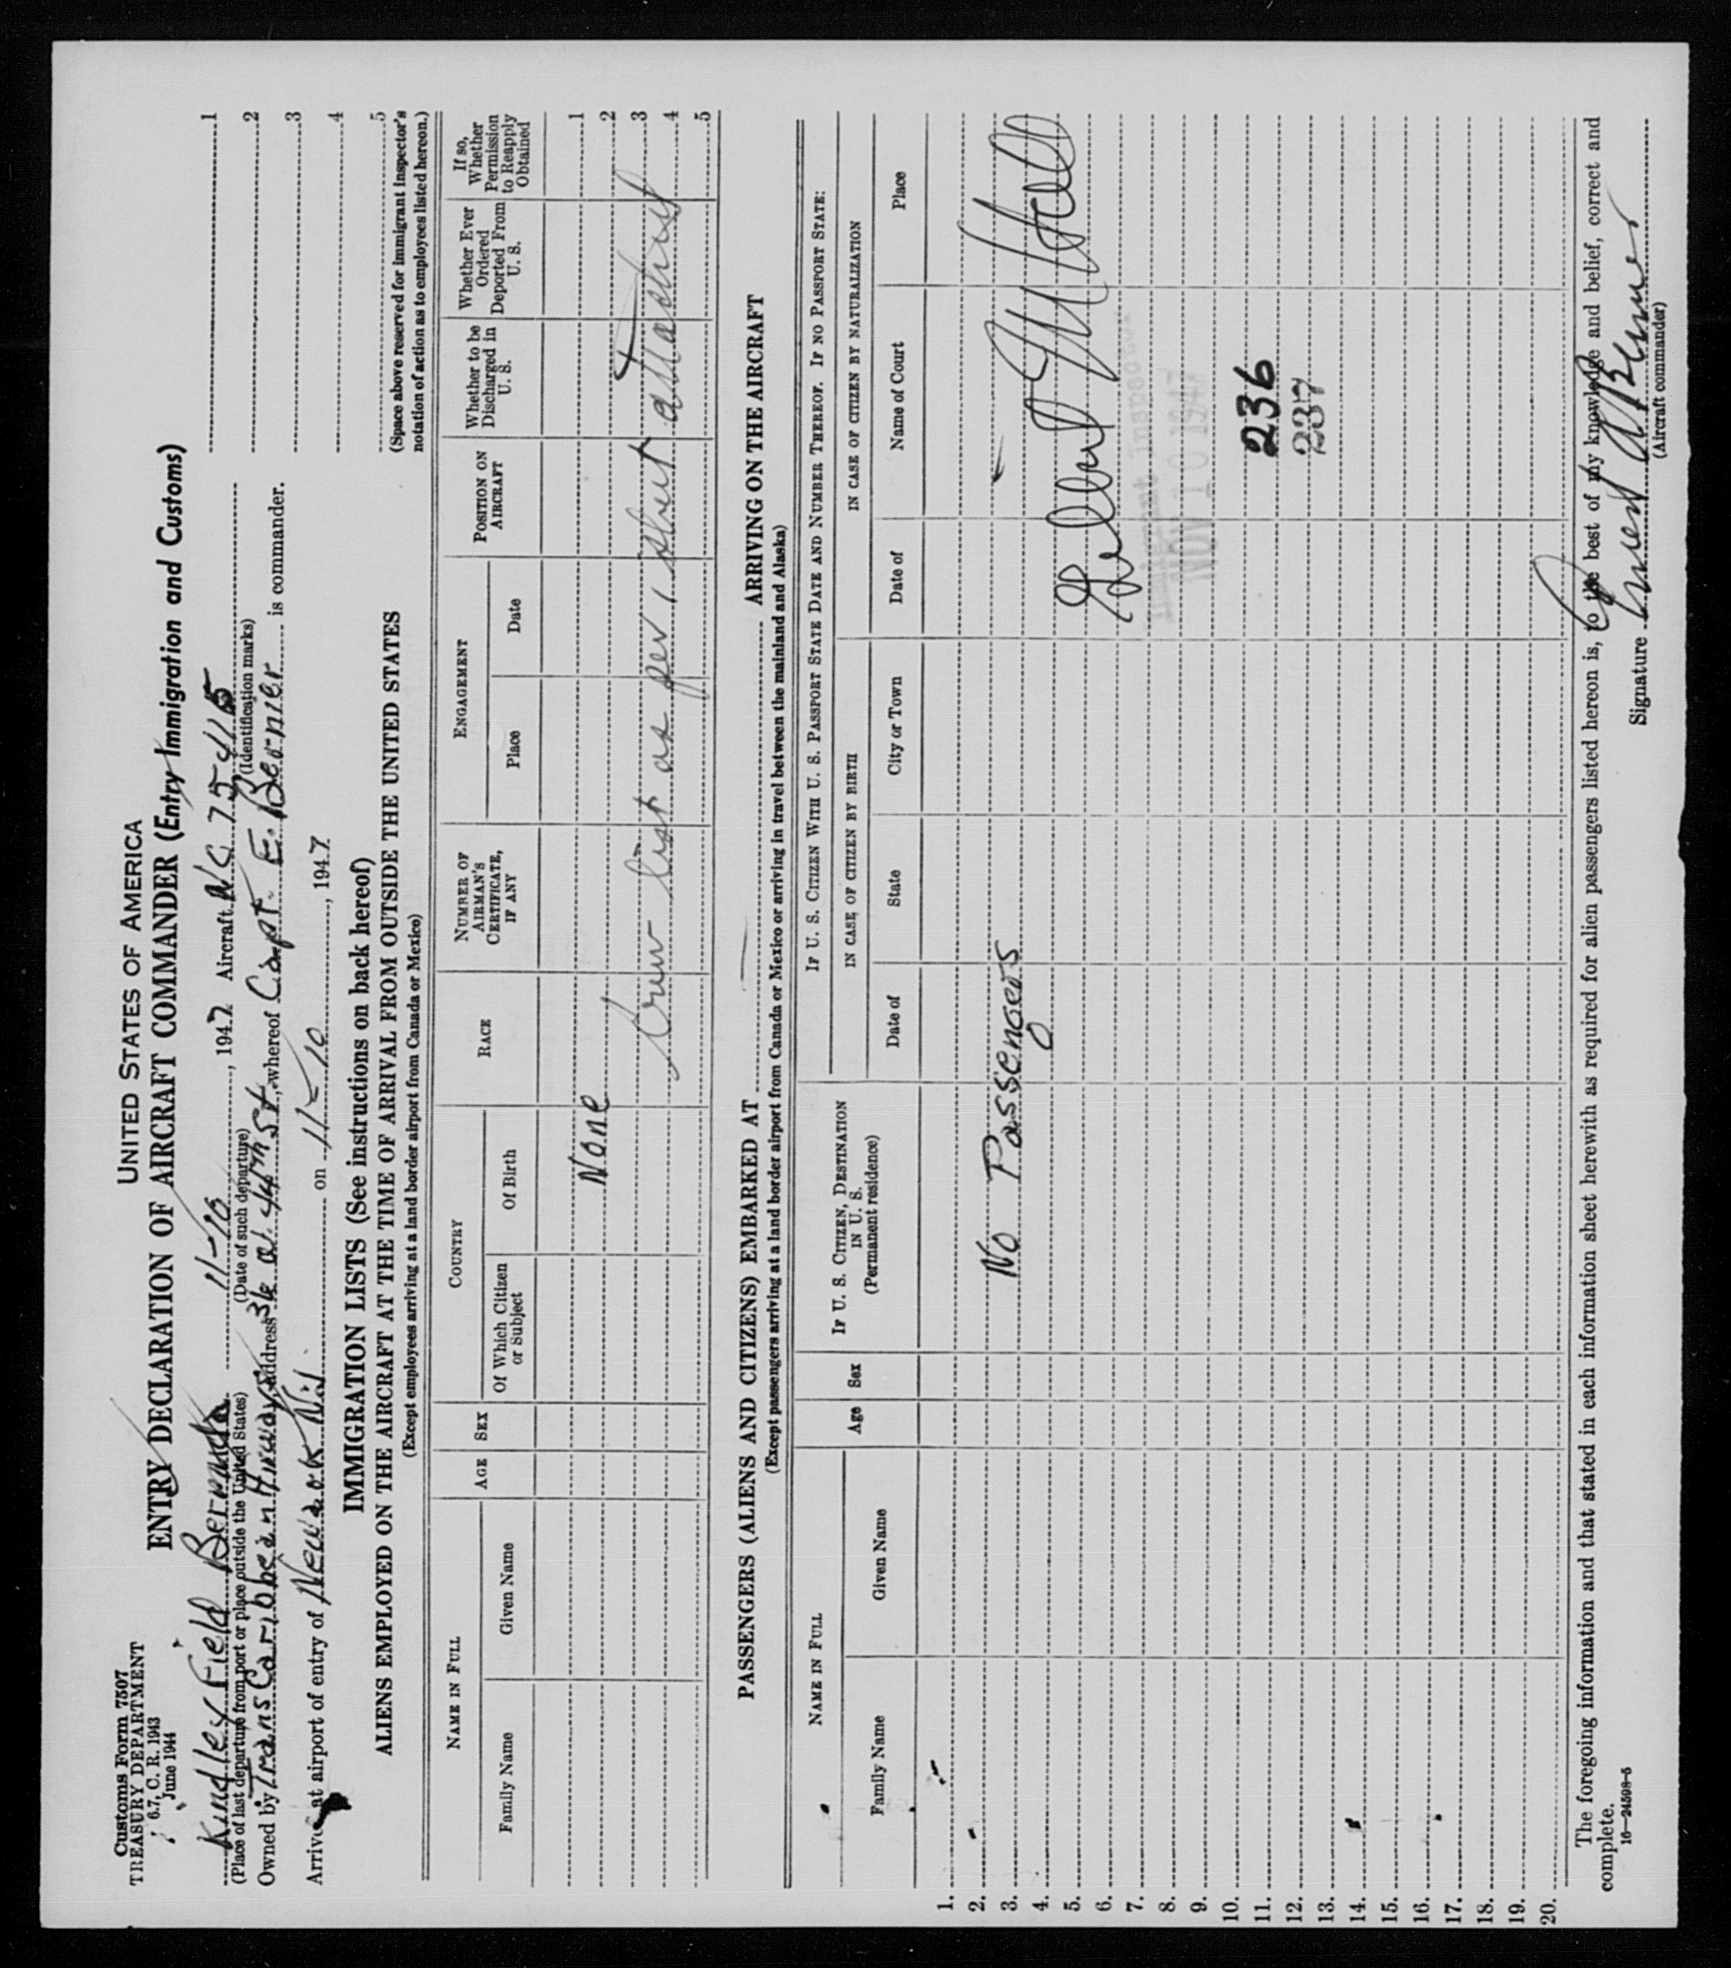 Customs Form 7507
TREASURY DEPARTMENT
6.7, C. R. 1943
June 1944
UNITED STATES OF AMERICA
ENTRY DECLARATION OF AIRCRAFT COMMANDER (Entry Immigration and Customs)
Kindley Field Bermuda 11-10, 1947 Aircraft NC 75415
(Place of last departure from port or place outside the United States) (Date of such departure) (Identification marks)
Owned by Trans Caribbean Airways, address 36 W. 44th St., whereof Capt. E. Bernier is commander.
Arrive at airport of entry of Newark N.J. on 11-10, 1947
1
2
3
4
5
(Space above reserved for immigrant inspector's
notation of action as to employees listed hereon.)
IMMIGRATION LISTS (See instructions on back hereof)
ALIENS EMPLOYED ON THE AIRCRAFT AT THE TIME OF ARRIVAL FROM OUTSIDE THE UNITED STATES
(Except employees arriving at a land border airport from Canada or Mexico)
NAME IN FULL
Family Name
Given Name
AGE
SEX
COUNTRY
Of Which Citizen or Subject
Of Birth
RACE
NUMBER OF AIRMAN'S CERTIFICATE, IF ANY
ENGAGEMENT
Place
Date
POSITION ON AIRCRAFT
Whether to be Discharged in U. S.
Whether Ever Ordered Deported From U. S.
If so, Whether Permission to Reapply Obtained
None
1
2
Crew list as per 1 sheet attached
3
4
5
PASSENGERS (ALIENS AND CITIZENS) EMBARKED AT ARRIVING ON THE AIRCRAFT
(Except passengers arriving at a land border airport from Canada or Mexico or arriving in travel between the mainland and Alaska)
NAME IN FULL
Family Name
Given Name
Age
Sex
IF U. S. CITIZEN, DESTINATION IN U. S.
(Permanent residence)
IF U. S. CITIZEN WITH U. S. PASSPORT STATE DATE AND NUMBER THEREOF. IF NO PASSPORT STATE:
IN CASE OF CITIZEN BY BIRTH
Date of
State
City or Town
IN CASE OF CITIZEN BY NATURALIZATION
Date of
Name of Court
Place
1.
2.
3. No Passengers
4.
5.
6.
7.
Immigrant Inspector
8.
NOV 10 1947
9.
10.
11. 236
12. 237
13.
14.
15.
16.
17.
18.
19.
20.
The foregoing information and that stated in each information sheet herewith as required for alien passengers listed hereon is, to the best of my knowledge and belief, correct and
complete.
Signature
(Aircraft commander)
16—24598-5